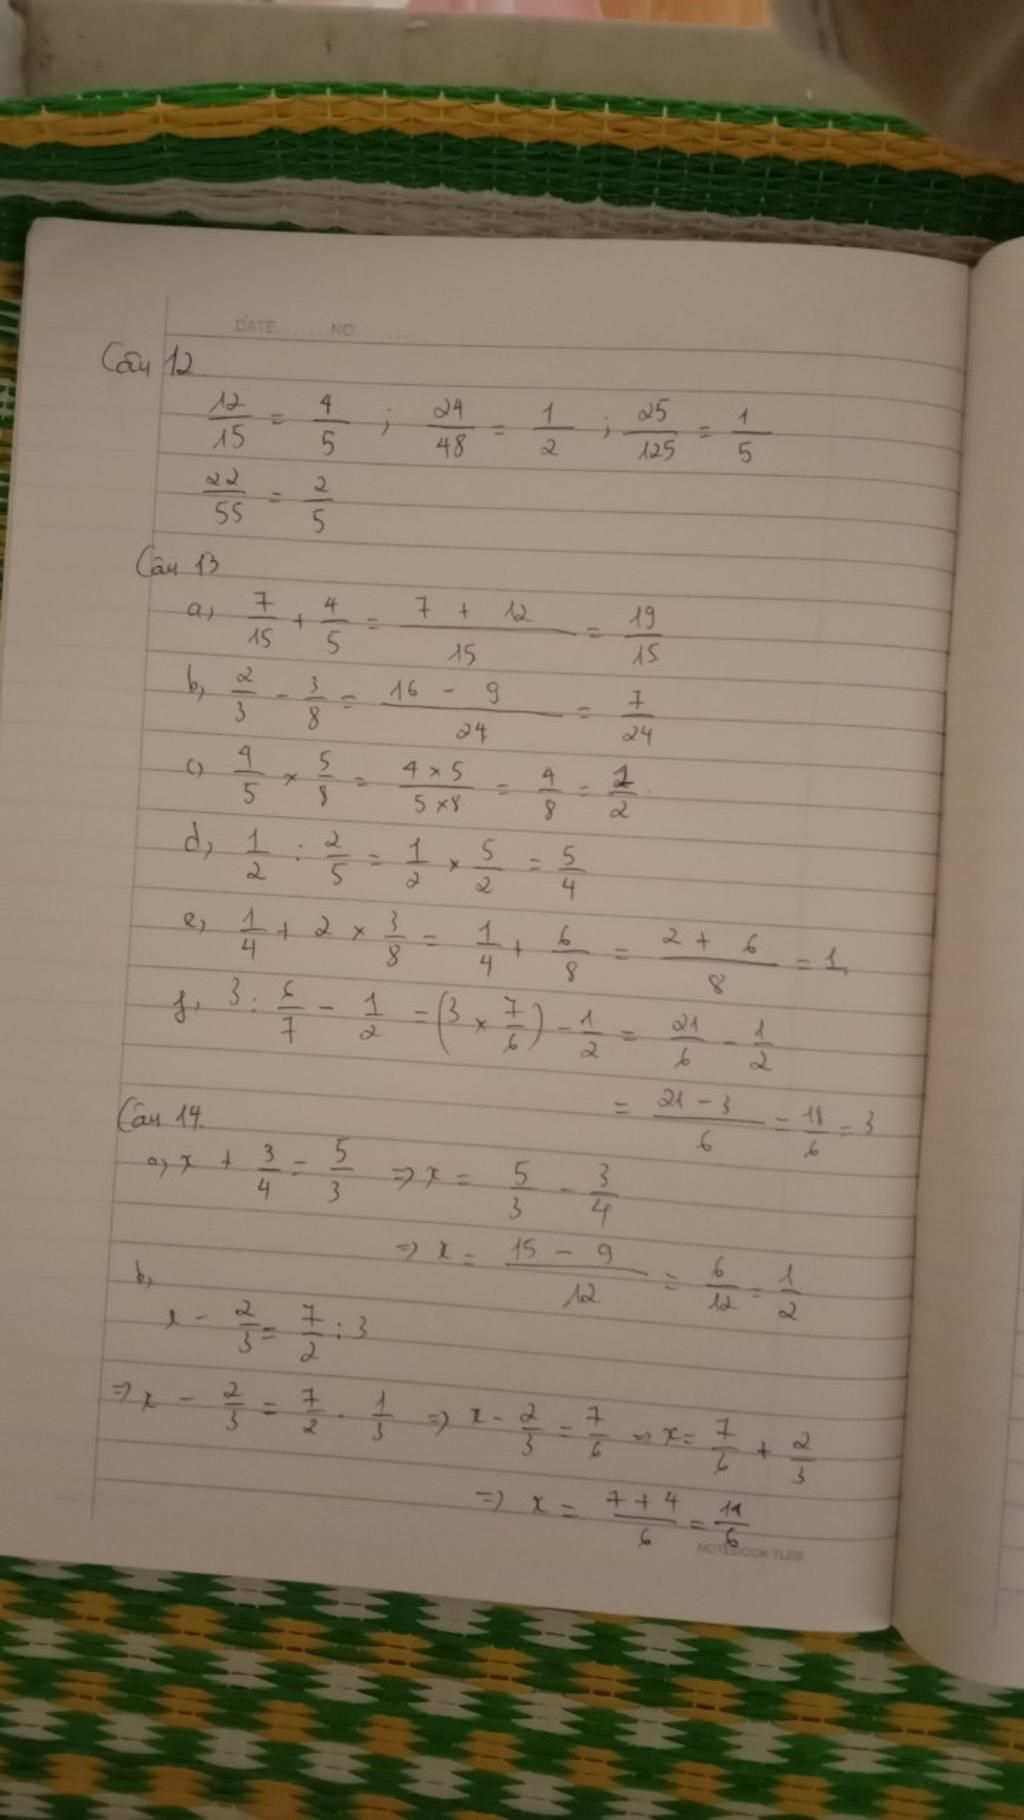 DATE ...... NO .......
Câu 12
12/15 = 4/5 ; 24/48 = 1/2 ; 25/125 = 1/5
22/55 = 2/5
Câu 13
a, 7/15 + 4/5 = (7 + 12)/15 = 19/15
b, 2/3 - 3/8 = (16 - 9)/24 = 7/24
c, 4/5 × 5/8 = (4 × 5)/(5 × 8) = 4/8 = 1/2.
d, 1/2 : 2/5 = 1/2 × 5/2 = 5/4
e, 1/4 + 2 × 3/8 = 1/4 + 6/8 = (2 + 6)/8 = 1
f, 3 : 6/7 - 1/2 = (3 × 7/6) - 1/2 = 21/6 - 1/2
= (21 - 3)/6 = 18/6 = 3
Câu 14.
a, x + 3/4 = 5/3 => x = 5/3 - 3/4
=> x = (15 - 9)/12 = 6/12 = 1/2
b,
x - 2/3 = 7/2 : 3
=> x - 2/3 = 7/2 . 1/3 => x - 2/3 = 7/6 => x = 7/6 + 2/3
=> x = (7 + 4)/6 = 11/6
NOTEBOOK TLEB